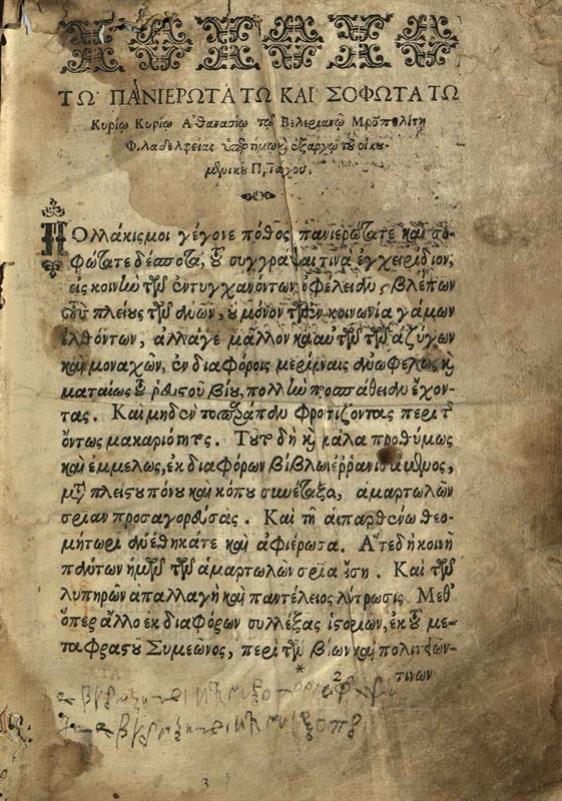 ΤΩ ΠΑΝΙΕΡΩΤΑΤΩ ΚΑΙ ΣΟΦΩΤΑΤΩ
Κυρίῳ Κυρίῳ Ἀθανασίῳ τῷ Βελεριανῷ Μροπολίτῃ
Φιλαδελφείας ὑπερτίμῳ καὶ ἐξάρχῳ τοῦ οἰκου-
μενικοῦ Πριάρχου.
ΠΟλλάκις μοι γέγονε πόθος πανιερώτατε καὶ σο-
φώτατε δέσποτα, τοῦ συγγράψαι τινα ἐγχειρίδιον,
εἰς κοινὴν τῶν ἐντυγχανόντων ὠφέλειαν, βλέπων
τοὺς πλείους τῶν
οὐ μόνον τῶν ἐν κοινωνία γάμων
ἐλθόντων, ἀλλάγε μᾶλλον καὶ αὐτῶν τῶν ἀζύγων
καὶ μοναχῶν, ἐν διαφόροις μερίμναις ἀνωφελῶς καὶ
ματαίως τοῦ ῥευστοῦ βίου, πολλὴν προσπάθειαν ἔχον-
τας. Καὶ μηδὲν τοπαράπαν φροτίζοντας περὶ τῆς
ὄντως μακαριότητος. Τοῦτο δὴ καὶ μάλα προθύμως
καὶ ἐμμελῶς, ἐκ διαφόρων βίβλων ἐρρανισάμενος,
μετὰ πλείστου πόνου καὶ κόπου συνέταξα, ἁμαρτωλῶν
σωτηρίαν προσαγορεύσας. Καὶ τῇ ἀειπαρθένῳ θεο-
μήτωρι ἀνέθηκάτε καὶ ἀφιέρωσα. Ἅτε δὴ κοινῇ
πάντων ἡμῶν τῶν ἁμαρτωλῶν σωτηρία ἔστη. Καὶ τῶν
λυπηρῶν ἀπαλλαγὴ καὶ παντέλειος λύτρωσις. Μεθ'
ὅπερ ἄλλο ἐκ διαφόρων συλλέξας ἱστοριῶν, ἐκ τοῦ με-
ταφραστοῦ Συμεῶνος, περὶ τῶν βίων καὶ πολιτειῶν
* 2 τινων
3